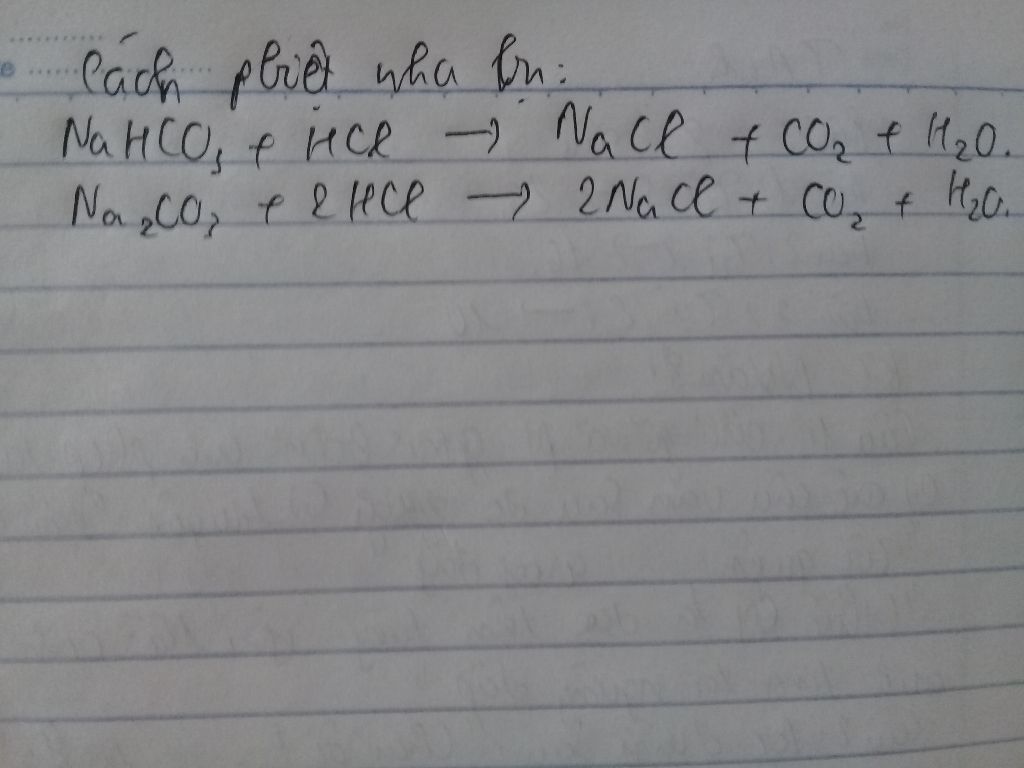 Cách pbiệt nha bn:
NaHCO₃ + HCl → NaCl + CO₂ + H₂O.
Na₂CO₃ + 2HCl → 2NaCl + CO₂ + H₂O.